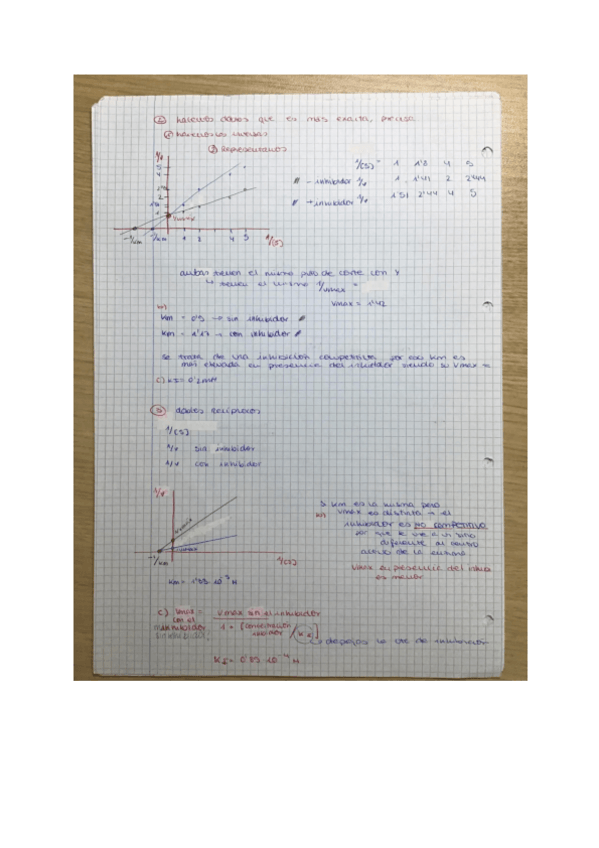 ② hacemos dobles que es más exacta, precisa
① hacemos los inversos
② Representamos
1/[S] 1 1'3 4 5
// - inhibidor 1/v 1 1'41 2 2'44
// + inhibidor 1/v 1'51 2'44 4 5
1/v
5
4
2
1
-1/Km -1/Km 1 2 4 5 1/[S]
ambas tienen el mismo punto de corte con y
↳ tienen el mismo 1/vmax =
Vmax = 1'42
Km = 0'5 → sin inhibidor //
Km = 1'17 → con inhibidor //
Se trata de una inhibición competitiva por eso Km es
más elevada en presencia del inhibidor siendo su Vmax =
c) KI = 0'2mM
③ dobles recíprocos
1/[S]
1/v sin inhibidor
1/v con inhibidor
1/v
-1/Km
1/[S]
Km es la misma pero
Vmax es distinta → el
inhibidor es no competitivo
por que se une a un sitio
diferente al centro
activo de la enzima
Vmax en presencia del
es menor
Km = 1'53·10⁻⁵ M
c) Vmax = Vmax sin el inhibidor
con el
inhibidor
1 + [concentración
KI]
↳ despejas la cte de inhibición
KI = 0'53·10⁻⁴ M